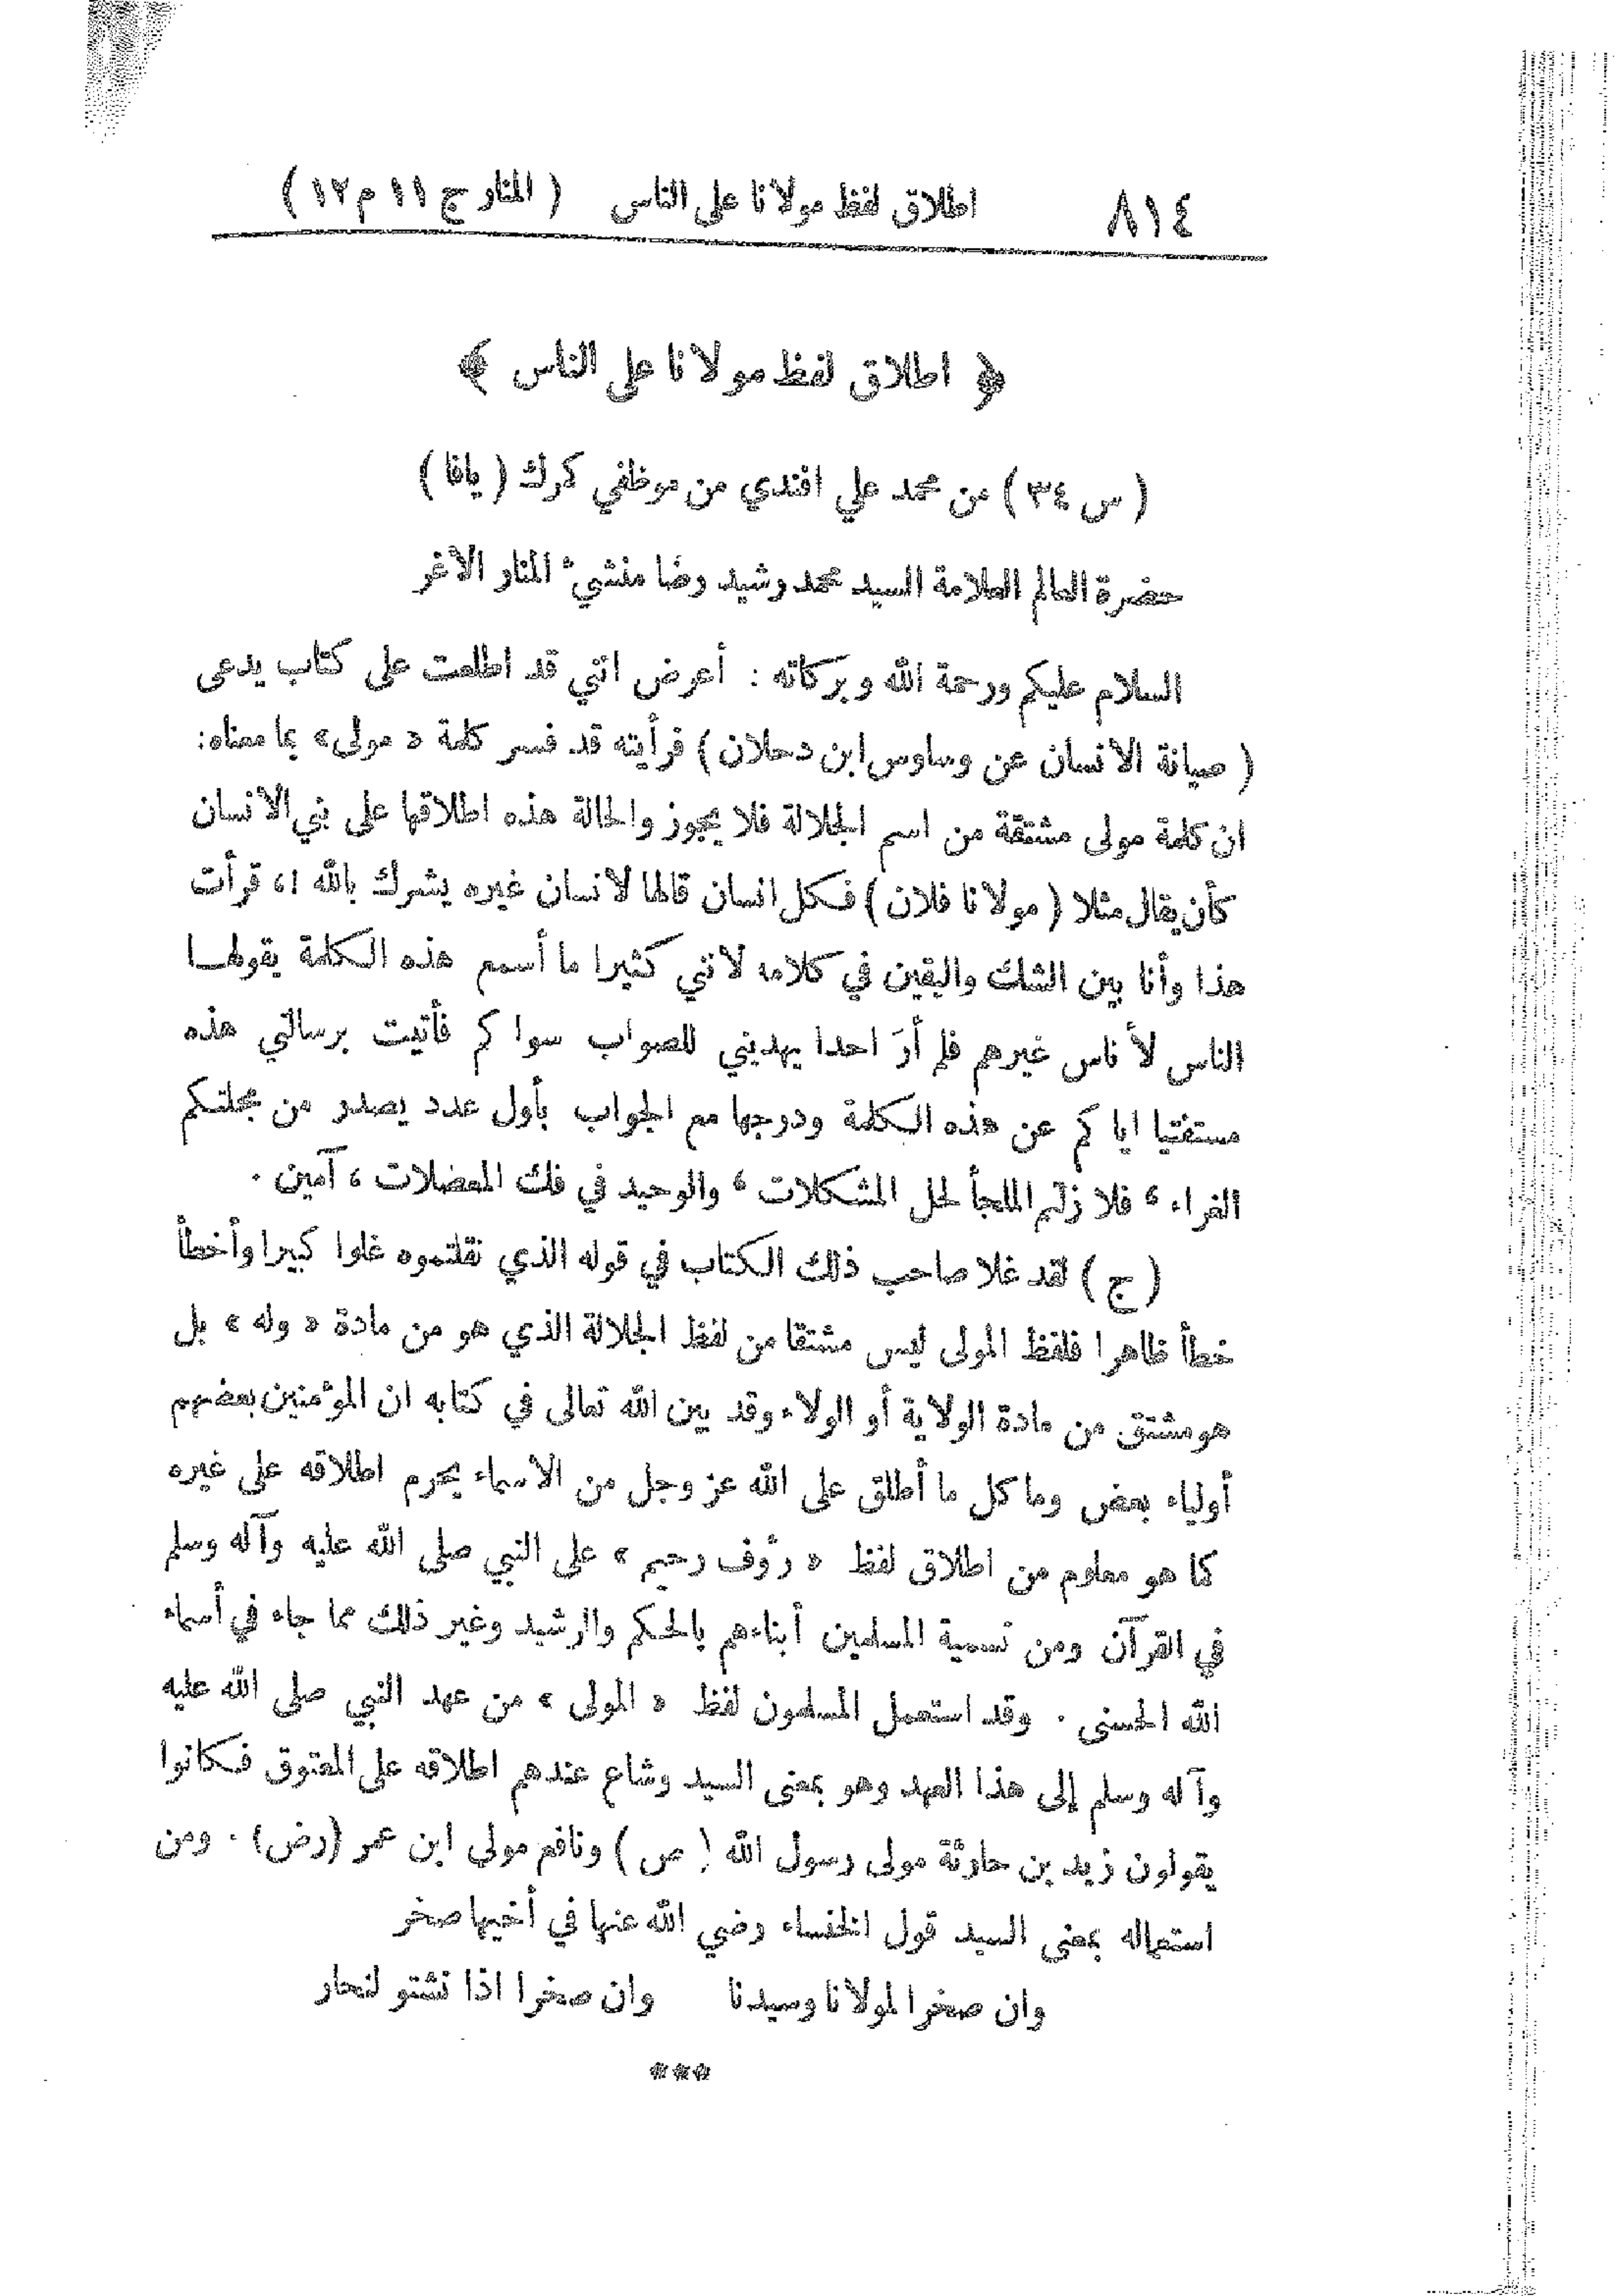 ٨١٤ اطلاق لفظ مولانا على الناس ( المنار ج ١١ م ١٢ )
﴿ اطلاق لفظ مولانا على الناس ﴾
( س ٣٤ ) من محمد علي افندي من موظفي كمرك ( يافا )
حضرة العالم العلامة السيد محمد رشيد رضا منشئ المنار الأغر
السلام عليكم ورحمة الله وبركاته : أعرض انني قد اطلعت على كتاب يدعى
( صيانة الانسان عن وساوس ابن دحلان ) فرأيته قد فسر كلمة « مولى » بما معناه:
ان كلمة مولى مشتقة من اسم الجلالة فلا يجوز والحالة هذه اطلاقها على بني الانسان
كأن يقال مثلا ( مولانا فلان ) فكل انسان قالها لانسان غيره يشرك بالله !، قرأت
هذا وأنا بين الشك واليقين في كلامه لانني كثيرا ما أسمع هذه الكلمة يقولها
الناس لأناس غيرهم فلم أرَ احدا يهديني للصواب سواكم فأتيت برسالتي هذه
مستفتيا اياكم عن هذه الكلمة ودرجها مع الجواب بأول عدد يصدر من مجلتكم
الغراء ، فلا زلتم الملجأ لحل المشكلات ، والوحيد في فك المعضلات ، آمين .
( ج ) لقد غلا صاحب ذلك الكتاب في قوله الذي نقلتموه غلوا كبيرا وأخطأ
خطأ ظاهرا فلفظ المولى ليس مشتقا من لفظ الجلالة الذي هو من مادة « وله » بل
هو مشتق من مادة الولاية أو الولاء وقد بين الله تعالى في كتابه ان المؤمنين بعضهم
أولياء بعض وما كل ما أطلق على الله عز وجل من الاسماء يحرم اطلاقه على غيره
كما هو معلوم من اطلاق لفظ « رؤف رحيم » على النبي صلى الله عليه وآله وسلم
في القرآن ومن تسمية المسلمين أبناءهم بالحكم والرشيد وغير ذلك مما جاء في أسماء
الله الحسنى . وقد استعمل المسلمون لفظ « المولى » من عهد النبي صلى الله عليه
وآله وسلم إلى هذا العهد وهو بمعنى السيد وشاع عندهم اطلاقه على المعتوق فكانوا
يقولون زيد بن حارثة مولى رسول الله ( ص ) ونافع مولى ابن عمر (رض) . ومن
استعماله بمعنى السيد قول الخنساء رضي الله عنها في أخيها صخر
وان صخرا لمولانا وسيدنا وان صخرا اذا نشتو لنحار
***